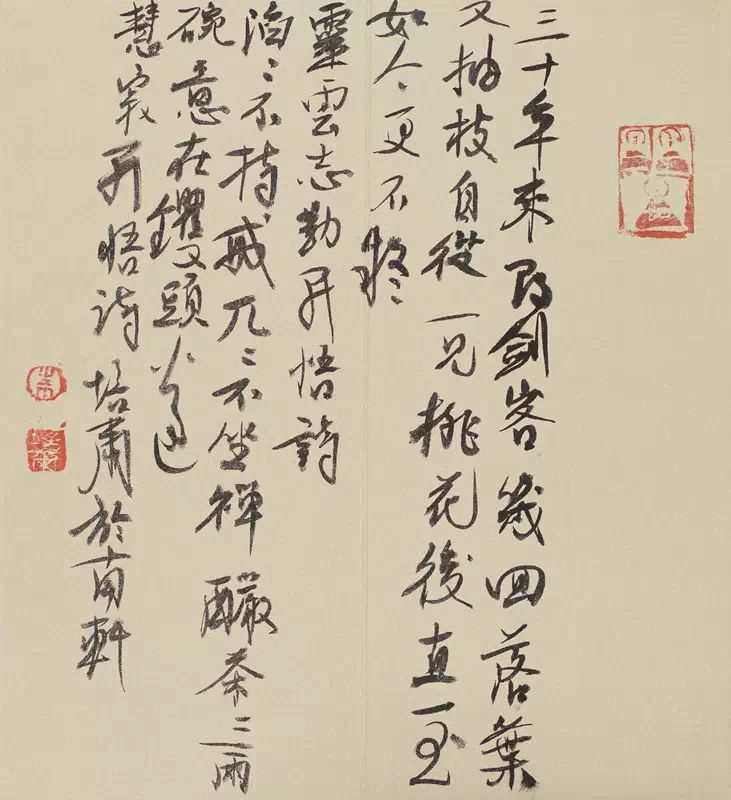 三十年来尋劍客幾回落葉
又抽枝自從一見桃花後直至
如今更不疑
靈雲志勤开悟詩
滔〻不持戒兀〻不坐禪釅茶三兩
碗意在钁頭邊
慧寂开悟詩培肅於南軒